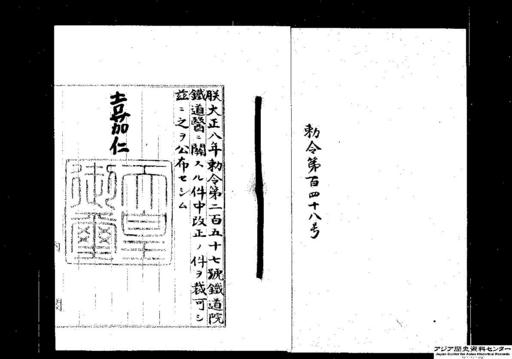 勅令第百四十八号
朕大正八年勅令第二百五十七號鐵道院
鐵道醫ニ關スル件中改正ノ件ヲ裁可シ
茲ニ之ヲ公布セシム
嘉仁
天皇御璽
アジア歴史資料センター
Japan Center for Asian Historical Records